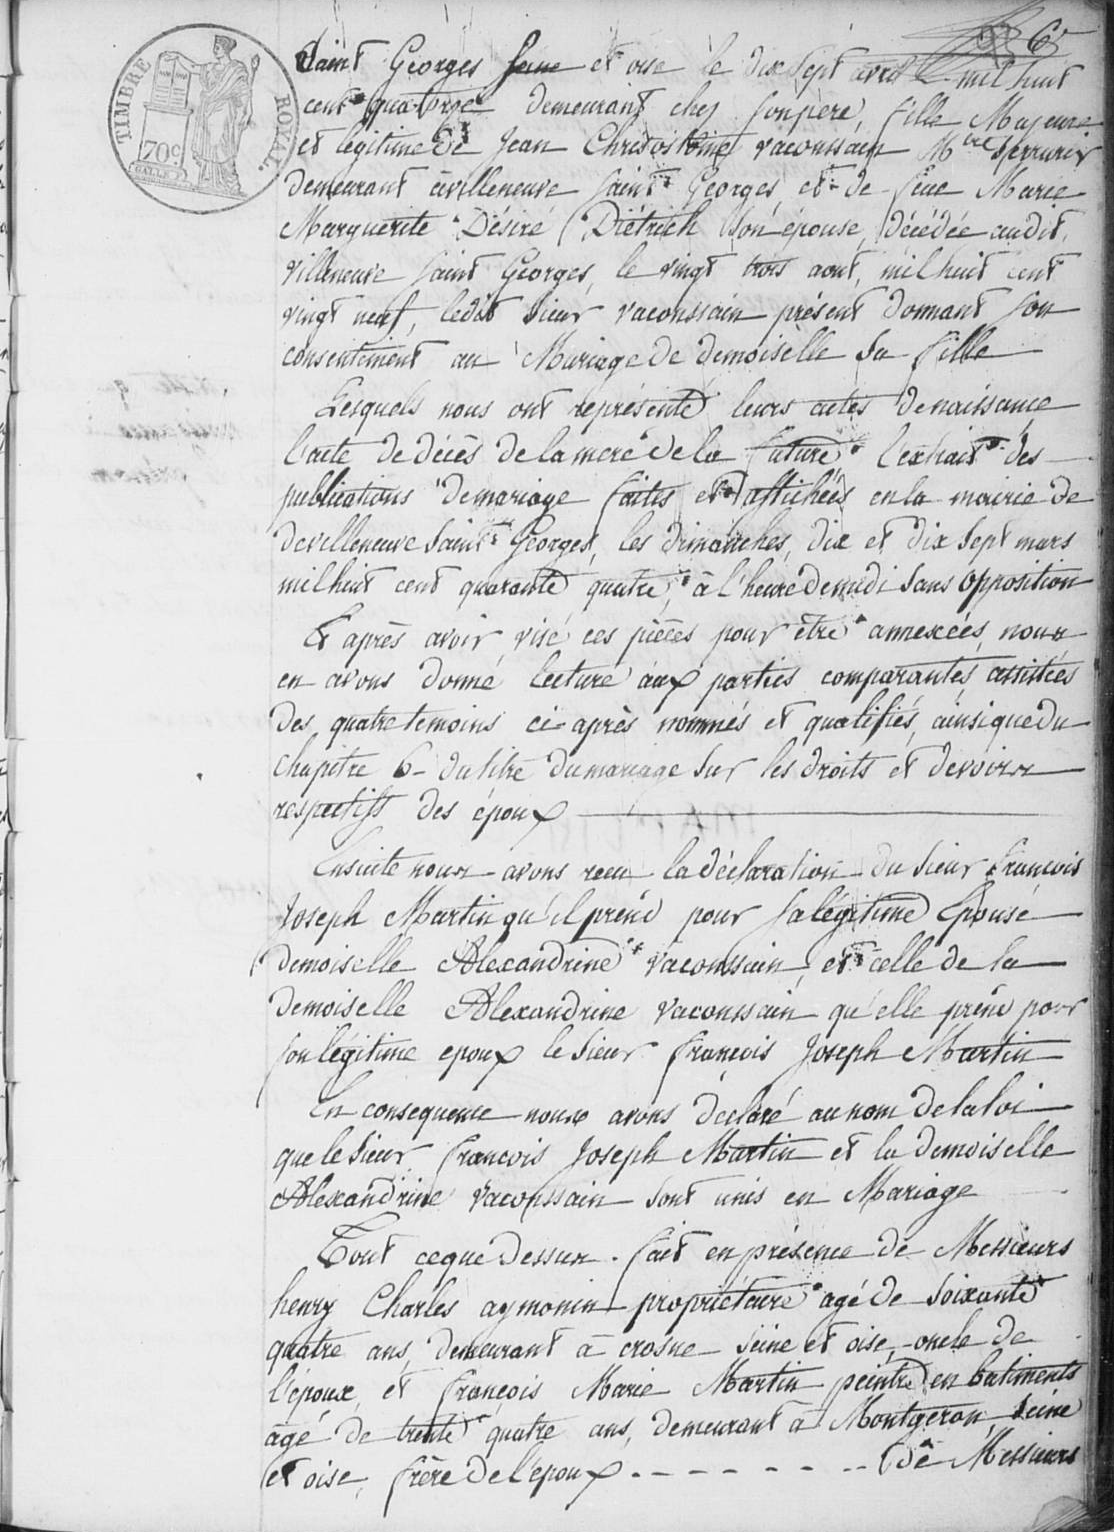 6
TIMBRE ROYAL.
70c
Saint Georges Seine et oise le dix sept avril mil huit
cent quatorze demeurant chez son pere, fille Majeure
et légitime de Jean Christostôme vaconssain Mtre serrurier
demeurant à villeneuve Saint Georges, et de feue Marie
Marguerite Désiré Diétrich son épouse, décédée audit,
villeneuve Saint Georges, le vingt trois aout, mil huit cent
vingt neuf, ledit Sieur vaconssain présent donnant son
consentement au Mariage de demoiselle Sa fille
Lesquels nous ont représenté leurs actes de naissance
l'acte de décès de la mere de la future l'extrait des
publications de mariage faites et affichées en la mairie de
de villeneuve Saint Georges, les dimanches, dix et dix Sept mars
mil huit cent quarante quatre, à l'heure de midi Sans opposition
Et après avoir visé ces pièces pour être annexées, nous
en avons donné lecture aux parties comparantes, assistées
des quatre temoins ci-après nommés et qualifiés, ainsi que du
chapitre 6 du titre du mariage Sur les droits et devoirs
respectifs des époux
Ensuite nous avons recu la déclaration du Sieur François
Joseph Martin qu'il prend pour Sa légitime Epouse
demoiselle Alexandrine vaconssain, et celle de la
demoiselle Alexandrine vaconssain qu'elle prend pour
Son légitime epoux le Sieur François Joseph Martin
En consequence nous avons déclaré au nom de la loi
que le Sieur François Joseph Martin et la demoiselle
Alexandrine vaconssain Sont unis en Mariage
Tout ce que dessus fait en présence de Messieurs
henry Charles aymonin propriétaire agé de Soixante
quatre ans, demeurant à crosne Seine et oise, oncle de
l'époux, et françois Marie Martin peintre en batiments
agé de trente quatre ans, demeurant à Montgeron, Seine
et oise, frère de l'époux - - - - - - - - de Messieurs